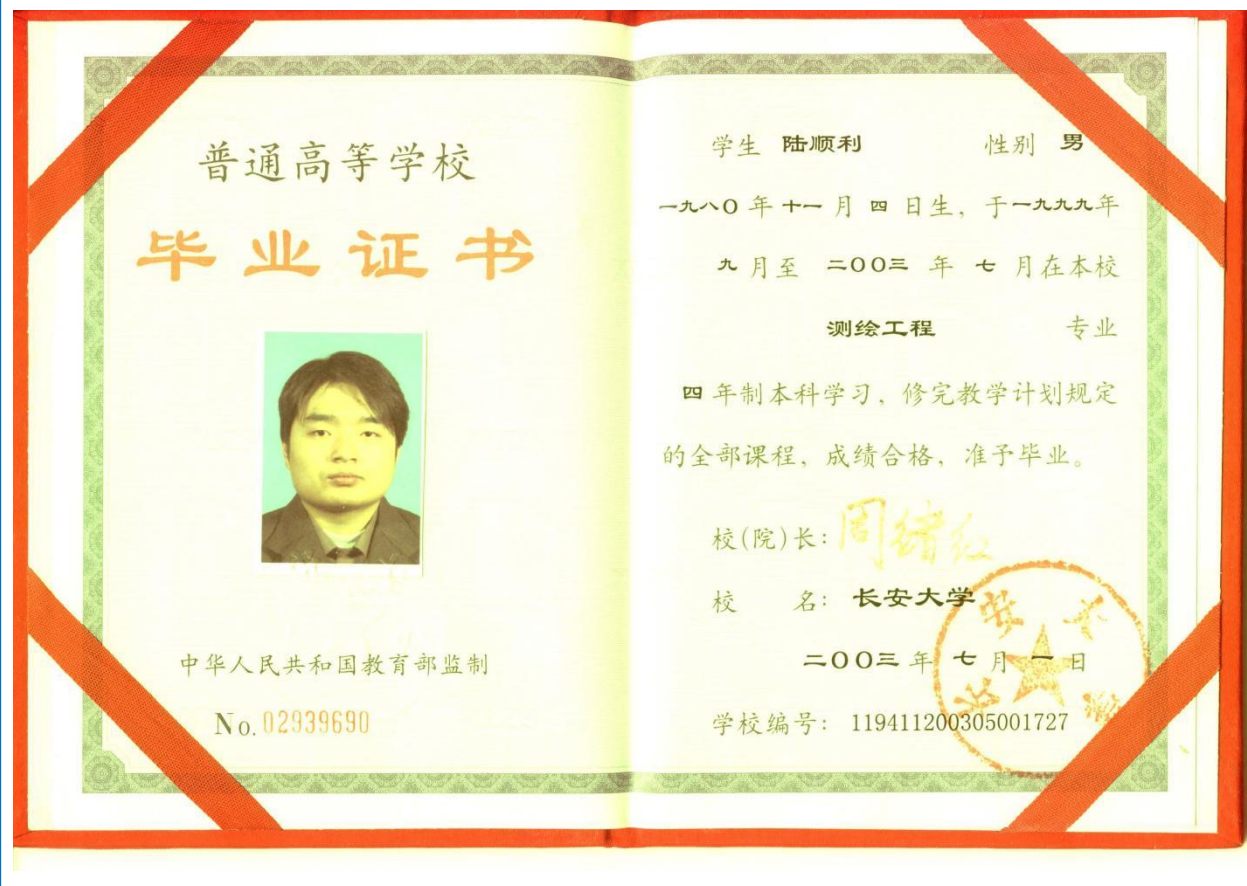 普通高等学校
毕业证书
中华人民共和国教育部监制
No. 02939690
学生 陆顺利 性别 男
一九八〇年十一月四日生，于一九九九年
九月至二〇〇三年七月在本校
测绘工程 专业
四年制本科学习，修完教学计划规定
的全部课程，成绩合格，准予毕业。
校(院)长：周绪红
校 名：长安大学
二〇〇三年七月一日
学校编号：119411200305001727
长安大学